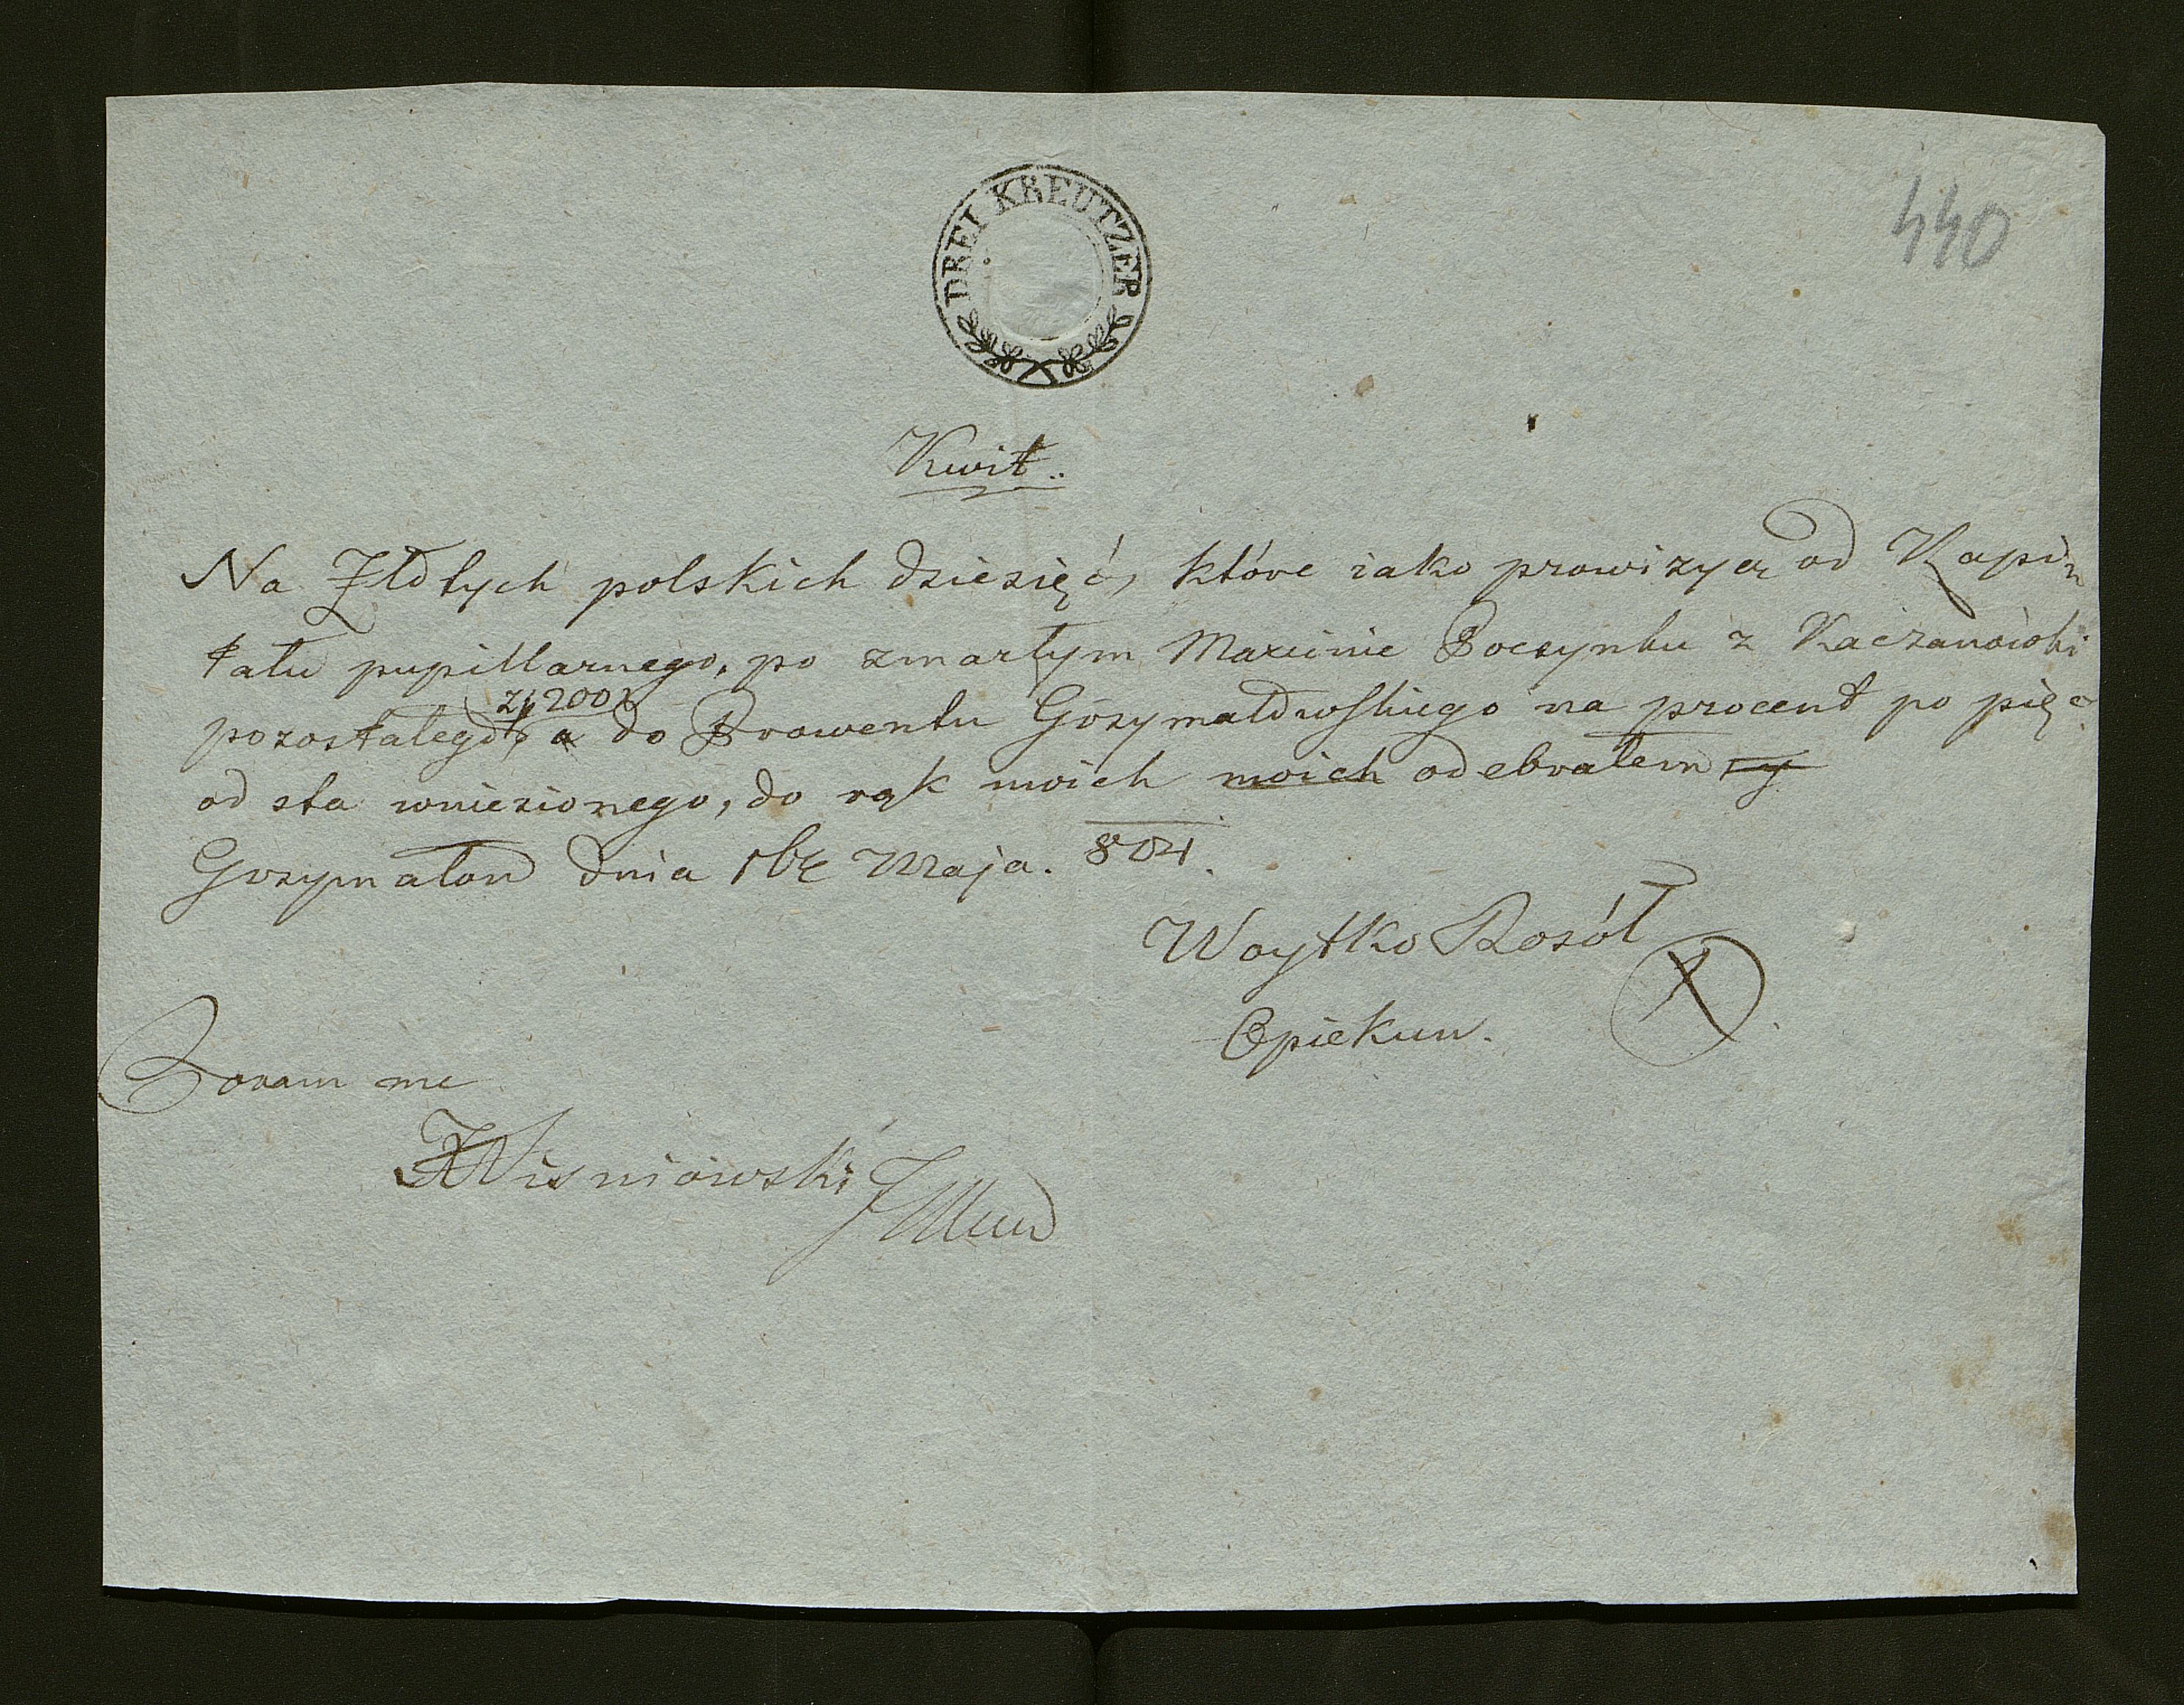 DREI KREUTZER
440
Kwit.
Na Złotych polskich dziesięć, które iako prowizya od Kapi
tału pupillarnego, po zmarłym Marcinie Boczynku z Kaczanówki
zł 200
pozostałego, a do Prowentu Grzymałowskiego na procent po pięć
od sta wniesionego, do rąk moich moich odebrałem
Grzymałow dnia 16 Maja. 804.
Woytko Rosół
X
Opiekun.
Coram me
Wisniowski